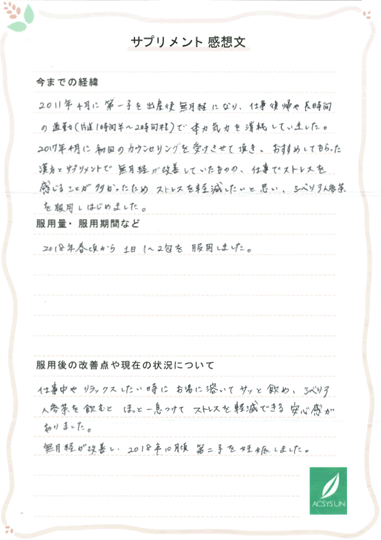 サプリメント 感想文
今までの経緯
2011年4月に 第一子を出産後 無月経になり、仕事復帰や長時間
の通勤(片道1時間半〜2時間程)で 体力気力を消耗していました。
2017年4月に 初回のカウンセリングを受けさせて頂き、おすすめしてもらった
漢方とサプリメントで 無月経が改善していたものの、仕事でストレスを
感じることが多かったため ストレスを軽減したいと思い、シベリア人参茶
を服用しはじめました。
服用量・服用期間など
2018年春頃から 1日1〜2包を 服用しました。
服用後の改善点や現在の状況について
仕事中や リラックスしたい時に お湯に溶いて サッと飲め、シベリア
人参茶を飲むと ほっと一息つけて ストレスを軽減できる 安心感が
ありました。
無月経が改善し、2018年10月頃 第二子を妊娠しました。
ACSYSUN